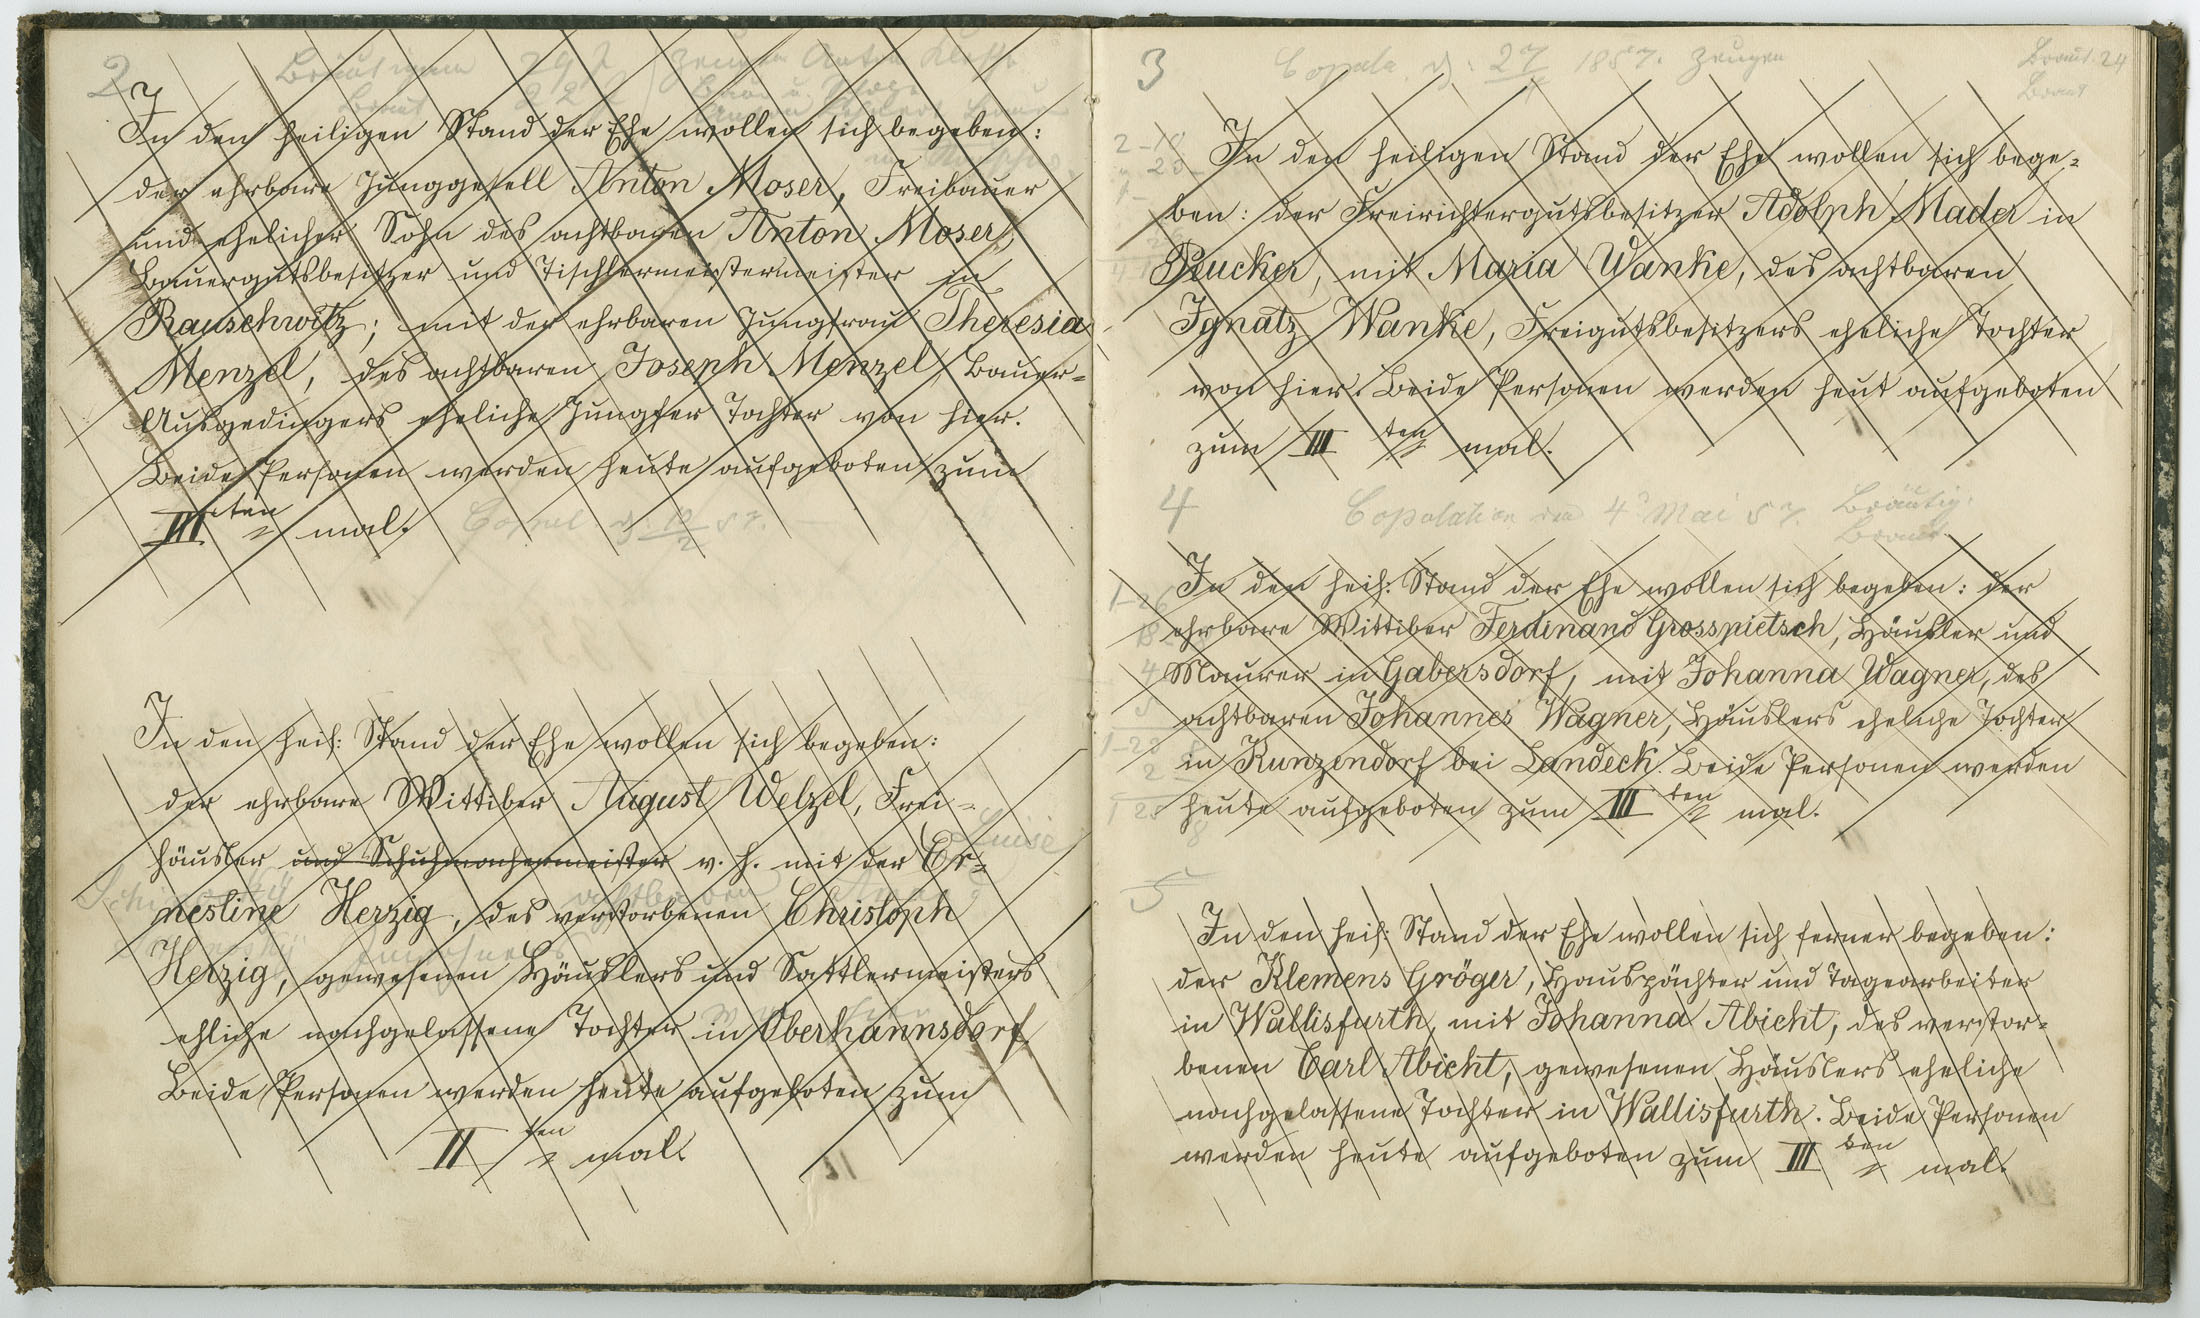 2
Bräutigam 29 J Zeugen Anton
Braut 22
In den heiligen Stand der Ehe wollen sich begeben:
der ehrbare Junggesell Anton Moser, Freibauer
und ehelicher Sohn des achtbaren Anton Moser,
Bauergutsbesitzer und Tischlermeistermeister in
Rauschwitz; mit der ehrbaren Jungfrau Theresia
Menzel, des achtbaren Joseph Menzel, Bauer-
Ausgedingers eheliche Jungfer Tochter von hier.
Beide Personen werden heute aufgeboten zum
III ten mal.
Copul. d. 10/2 57.
In den heil: Stand der Ehe wollen sich begeben:
der ehrbare Wittiber August Welzel, Frei-
häusler und Schuhmachermeister v. h. mit der Er-
Luise
nestine Herzig, des verstorbenen Christoph
achtbaren
Herzig, gewesenen Häuslers und Sattlermeisters
ehliche nachgelassene Tochter in Oberhannsdorf.
Beide Personen werden heute aufgeboten zum
II ten mal.
3
Copula. d: 27 1857. Zeugen
Bräut. 24
Braut
In den heiligen Stand der Ehe wollen sich bege-
ben: der Freirichtergutsbesitzer Adolph Mader in
Peucker, mit Maria Wanke, des achtbaren
Ignatz Wanke, Freigutsbesitzers eheliche Tochter
von hier. Beide Personen werden heut aufgeboten
zum III ten mal.
4
Copulation den 4 Mai 57. Bräutig.
Braut
In den heil: Stand der Ehe wollen sich begeben: der
ehrbare Wittiber Ferdinand Grosspietsch, Häusler und
Maurer in Gabersdorf, mit Johanna Wagner, des
achtbaren Johannes Wagner, Häuslers eheliche Tochter
in Kunzendorf bei Landeck. Beide Personen werden
heute aufgeboten zum III ten mal.
5
In den heil: Stand der Ehe wollen sich ferner begeben:
der Klemens Gröger, Hauspächter und Tagearbeiter
in Wallisfurth, mit Johanna Abicht, des verstor-
benen Carl Abicht, gewesenen Häuslers eheliche
nachgelassene Tochter in Wallisfurth. Beide Personen
werden heute aufgeboten zum III ten mal.